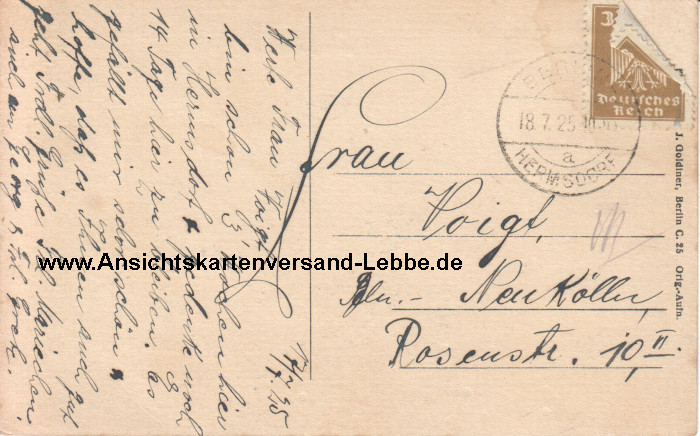 17/7. 25
Werte Frau Voigt!
bin schon 3 Wochen hier
in Hermsdorf u. gedenke noch
14 Tage hier zu bleiben. Es
gefällt mir sehr schön u
hoffe, daß es Ihnen auch gut
geht. Frdl. Grüße Frl. Mariechen
und
Frau
Voigt,
Bln.- Neukölln,
Rosenstr. 10, II.
3
Deutsches
Reich
BERLIN
18.7.25
a
HERMSDORF
J. Goldiner, Berlin C. 25 Orig.-Aufn.
www.Ansichtskartenversand-Lebbe.de